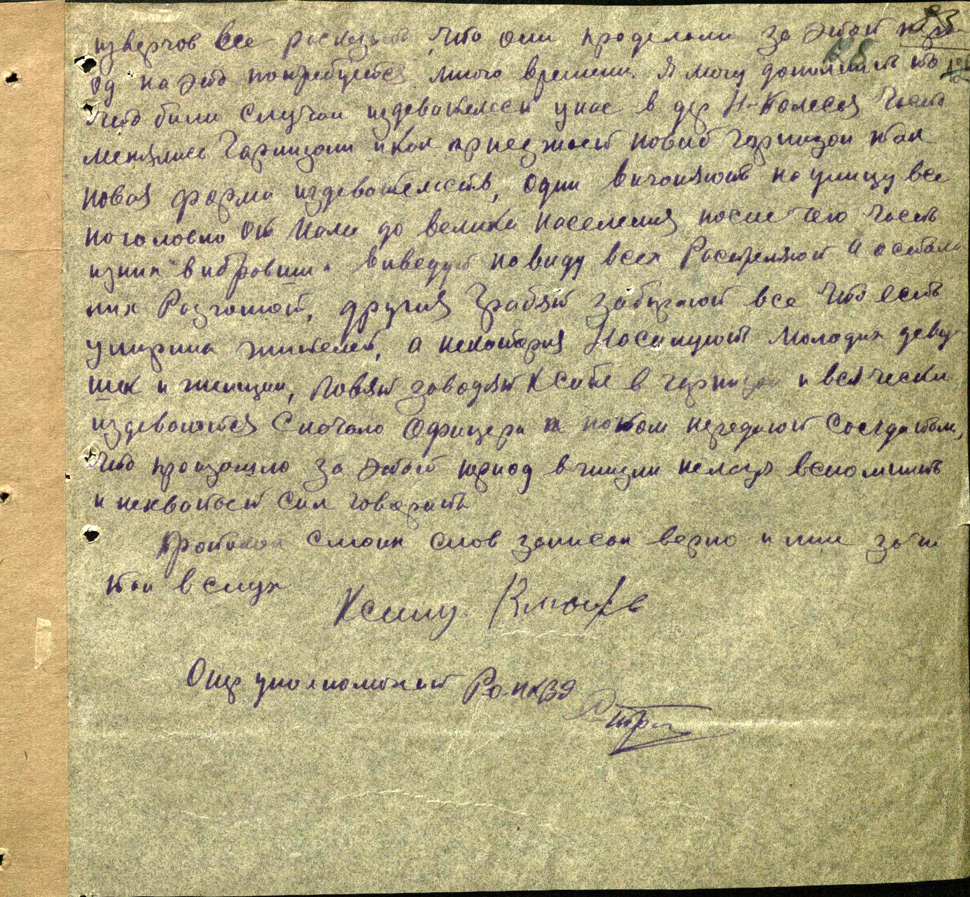 83
извергов все расказыват что они проделали за этот пери
68
од на это потребуется много времени. Я могу дополнить то
что били случаи издевателсв унас в дер Н-Колеся часто
менялись Гарнизони икак приезжает новий Гарнизон так
новая форма издевательств, одни вигоняют наулицу все
поголовно от мала до велика населения после чего часть
изних "вибравши" виведут повиду всех Растреляют а осталь
них Разгонют, другия Грабят забирают все что есть
умирних жителей, а некотория Насилуют молодих деву
шек и женщин, Ловят заводят ксибе в гарнизон и всячески
издеваются Сначало Офицери а потом передают Солдатам,
что произашло за этот период вжизни нельзя вспомнить
и нехватает сил говорить
Протокол смоих слов записан верно и мне зачи
тан вслух
Ксему
Опер уполномочений Ро-НКВД